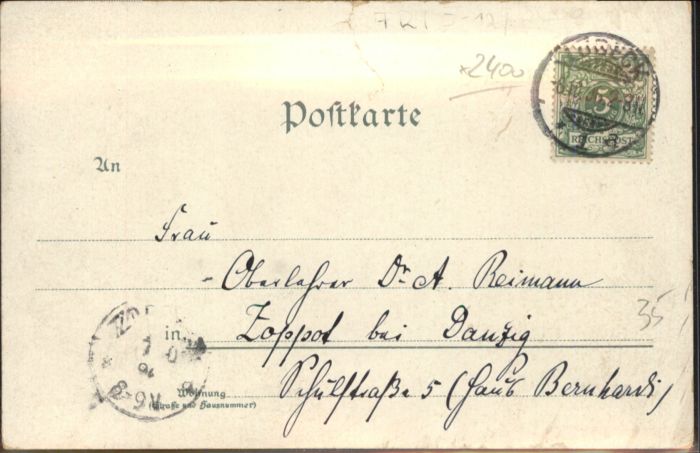 ×2400
Postkarte
5
REICHSPOST
An
Frau
Oberlehrer Dr. A. Reimann
in Zoppot bei Danzig
35
Wohnung
(Straße und Hausnummer)
Schulstraße 5 (Haus Bernhardi)